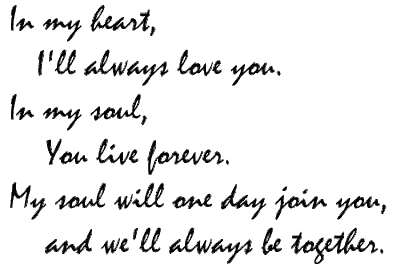 In my heart,
I'll always love you.
In my soul,
You live forever.
My soul will one day join you,
and we'll always be together.